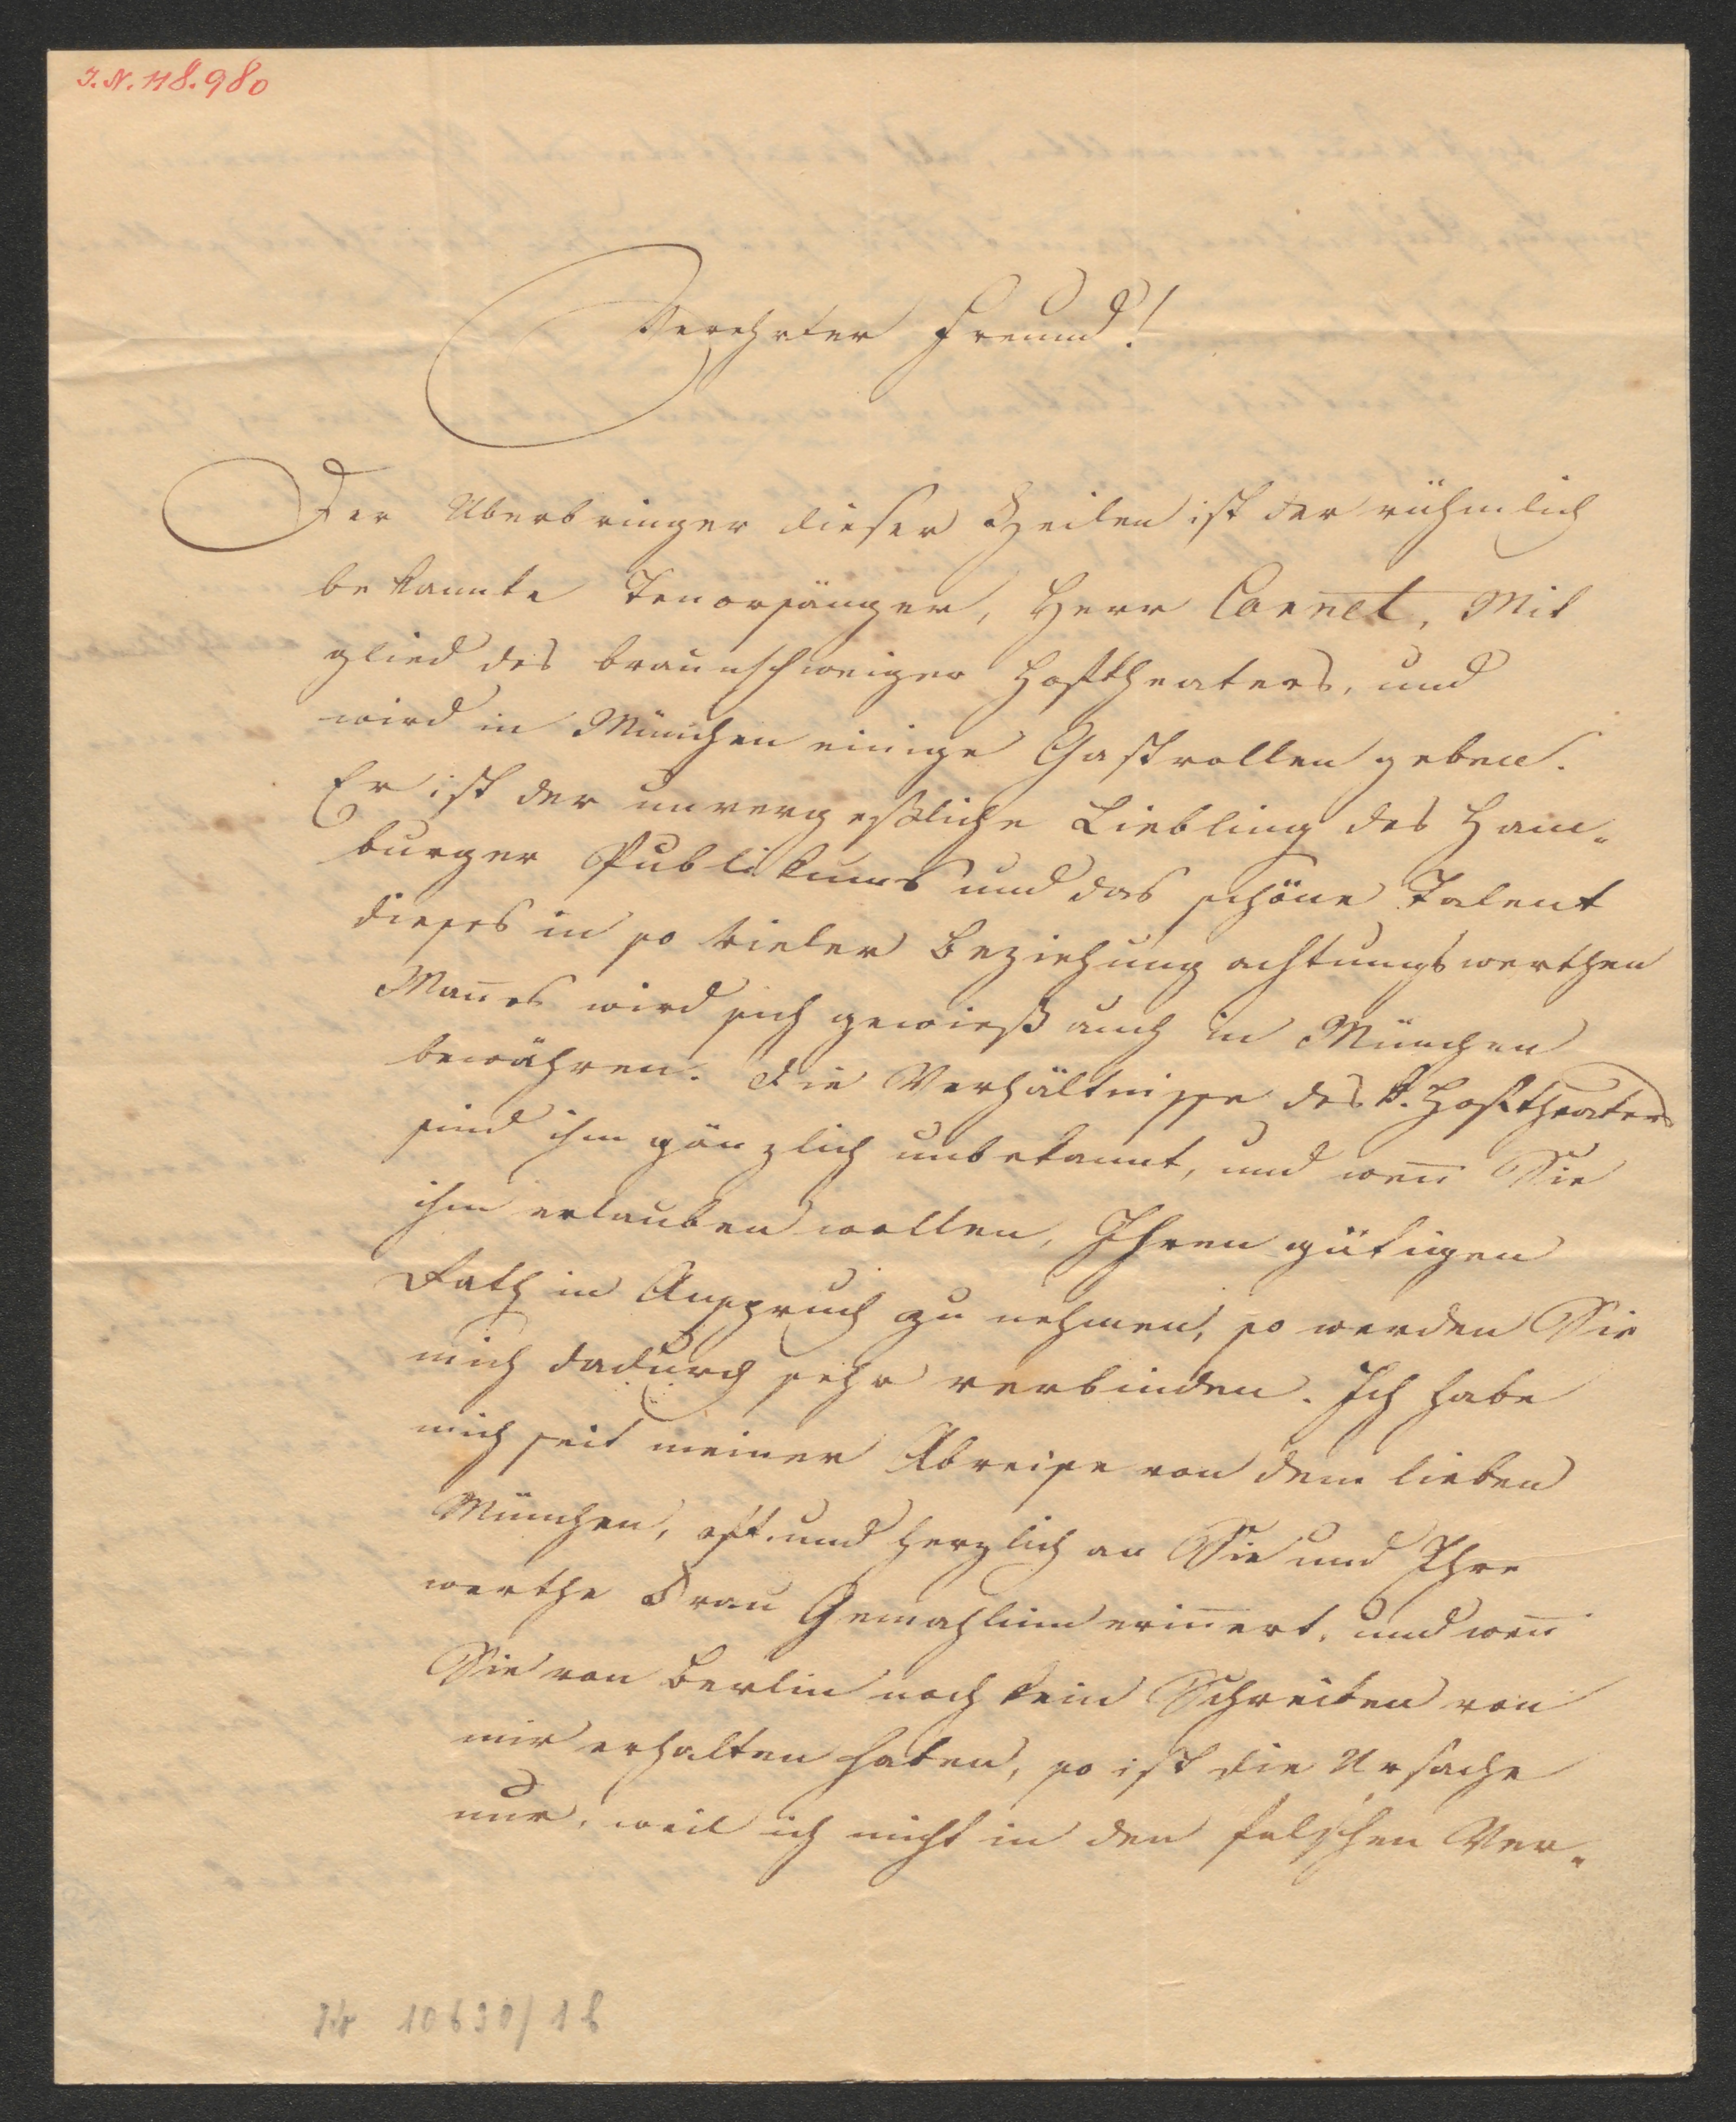 J. N. 118.980
Verehrter Freund!
Der Uberbringer dieser Zeilen ist der rühmlich
bekannte Tenorsänger, Herr Cornet, Mit
glied des braunschweiger Hoftheaters, und
wird in München einige Gastrollen geben.
Er ist der unvergeßliche Liebling des Ham-
burger Publikums und das schöne Talent
dieses in so vieler Beziehung achtungswerthen
Mañes wird sich gewieß auch in München
bewähren. Die Verhältnisse des k. Hoftheaters
sind ihm gänzlich unbekannt, und weñ Sie
ihm erlauben wollen, Ihren gütigen
Rath in Anspruch zu nehmen, so werden Sie
mich dadurch sehr verbinden. Ich habe
mich seit meiner Abreise von dem lieben
München, oft und herzlich an Sie und Ihre
werthe Frau Gemahlinn eriñert, und weñ
Sie von Berlin noch kein Schreiben von
mir erhalten haben, so ist die Ursache
nur, weil ich nicht in den falschen Ver-
10630/18